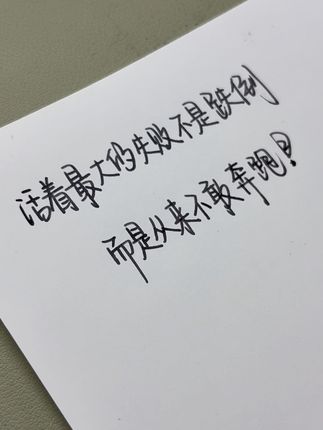 活着最大的失败不是跌倒
而是从来不敢奔跑!